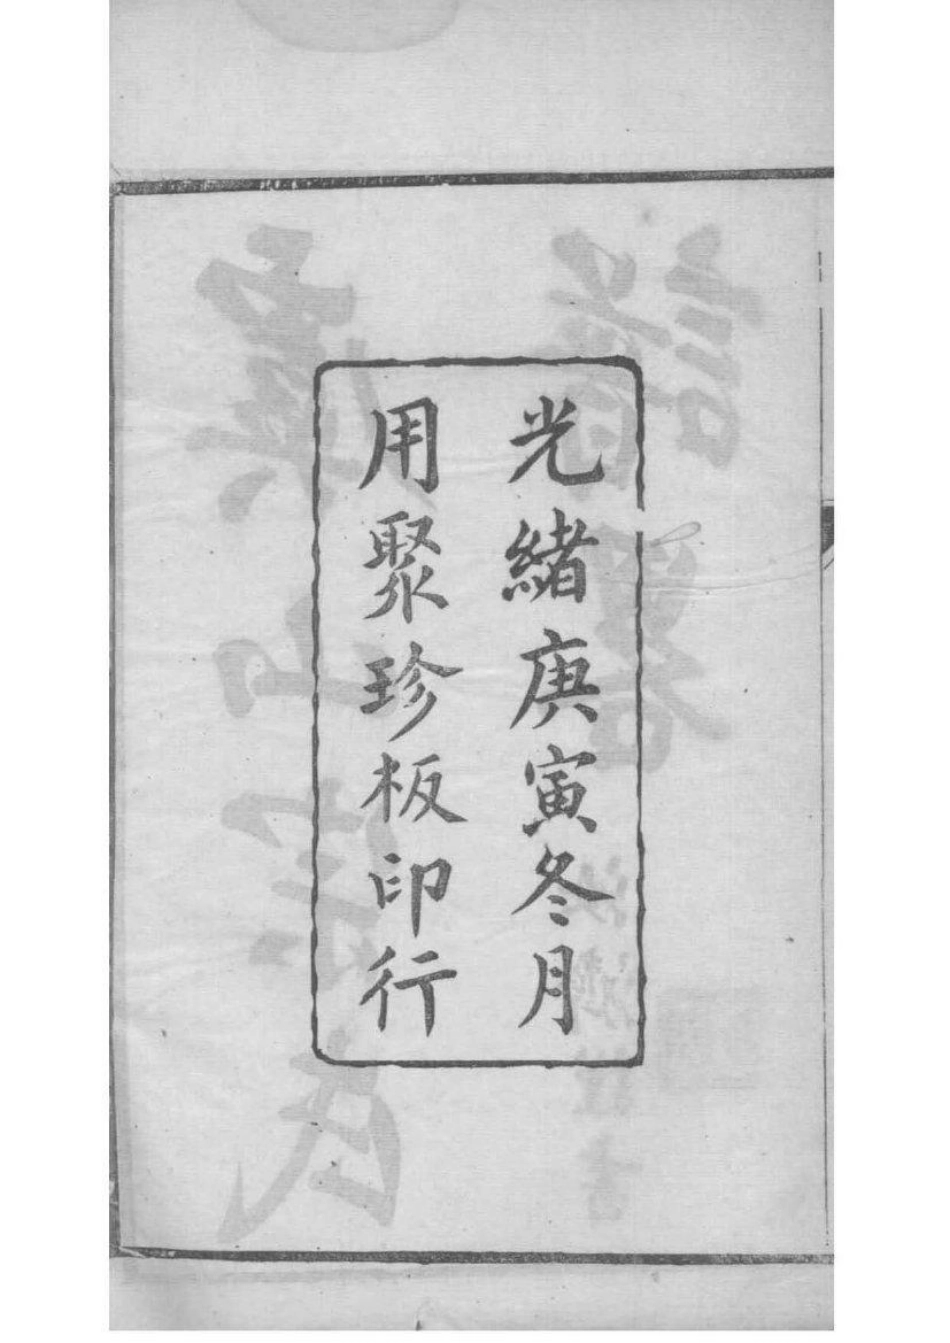 光緒庚寅冬月
用聚珍板印行